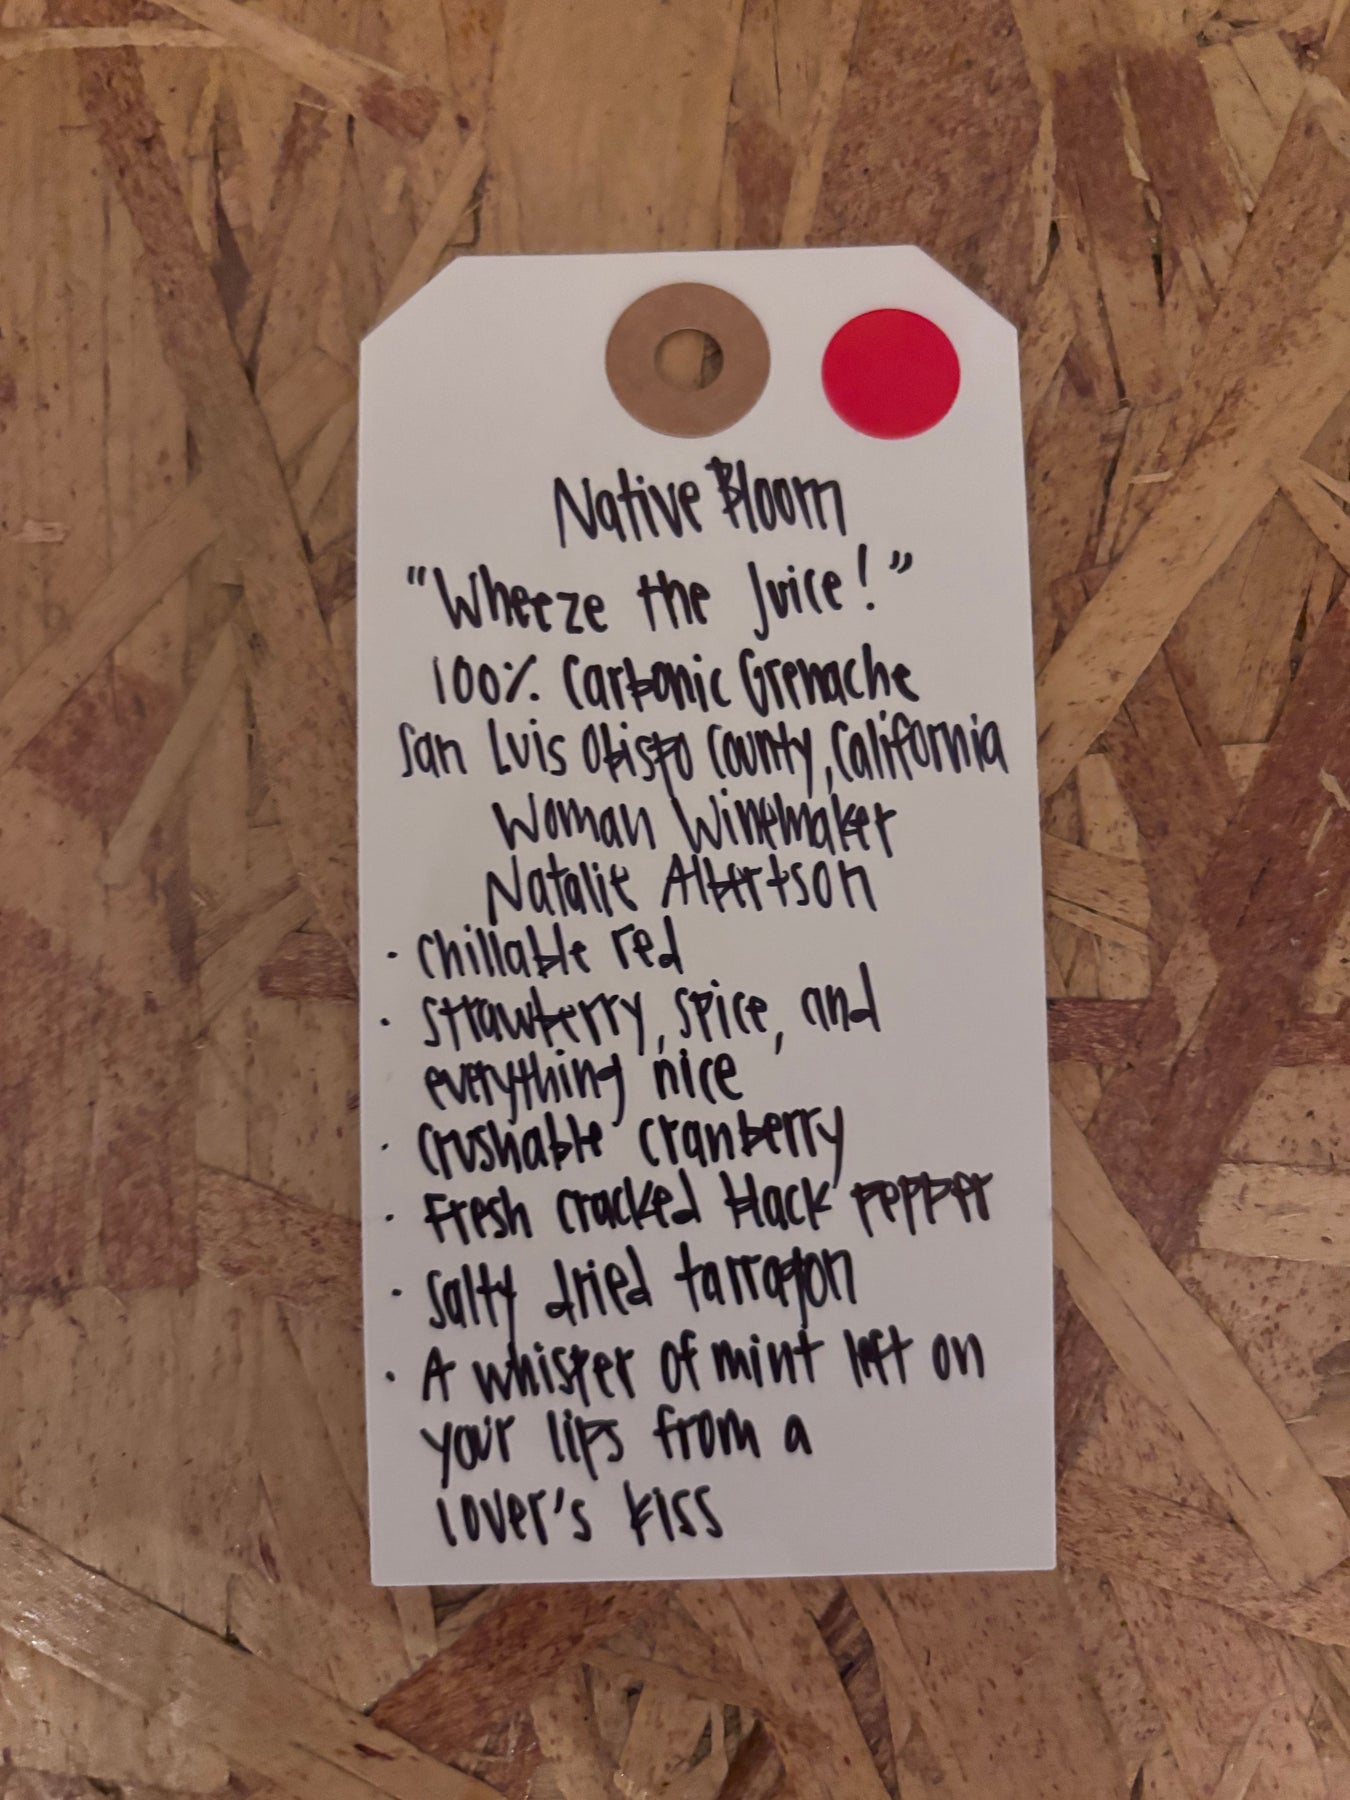 Native Bloom
"Wheeze the Juice!"
100% Carbonic Grenache
San Luis Obispo County, California
Woman Winemaker
Natalie Albertson
· Chillable red
· Strawberry, spice, and
everything nice
· Crushable cranberry
· Fresh cracked black pepper
· Salty dried tarragon
· A whisper of mint left on
your lips from a
lover's kiss